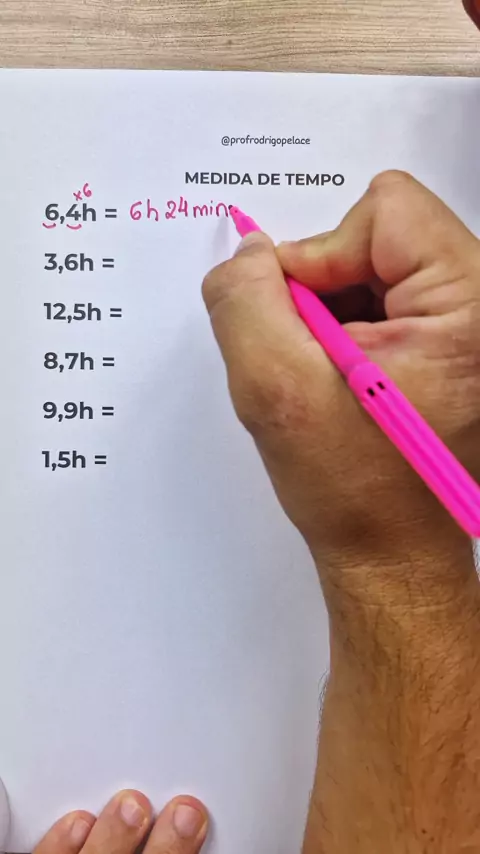 @profrodrigopelace
MEDIDA DE TEMPO
x6
6,4h = 6h 24min
3,6h =
12,5h =
8,7h =
9,9h =
1,5h =